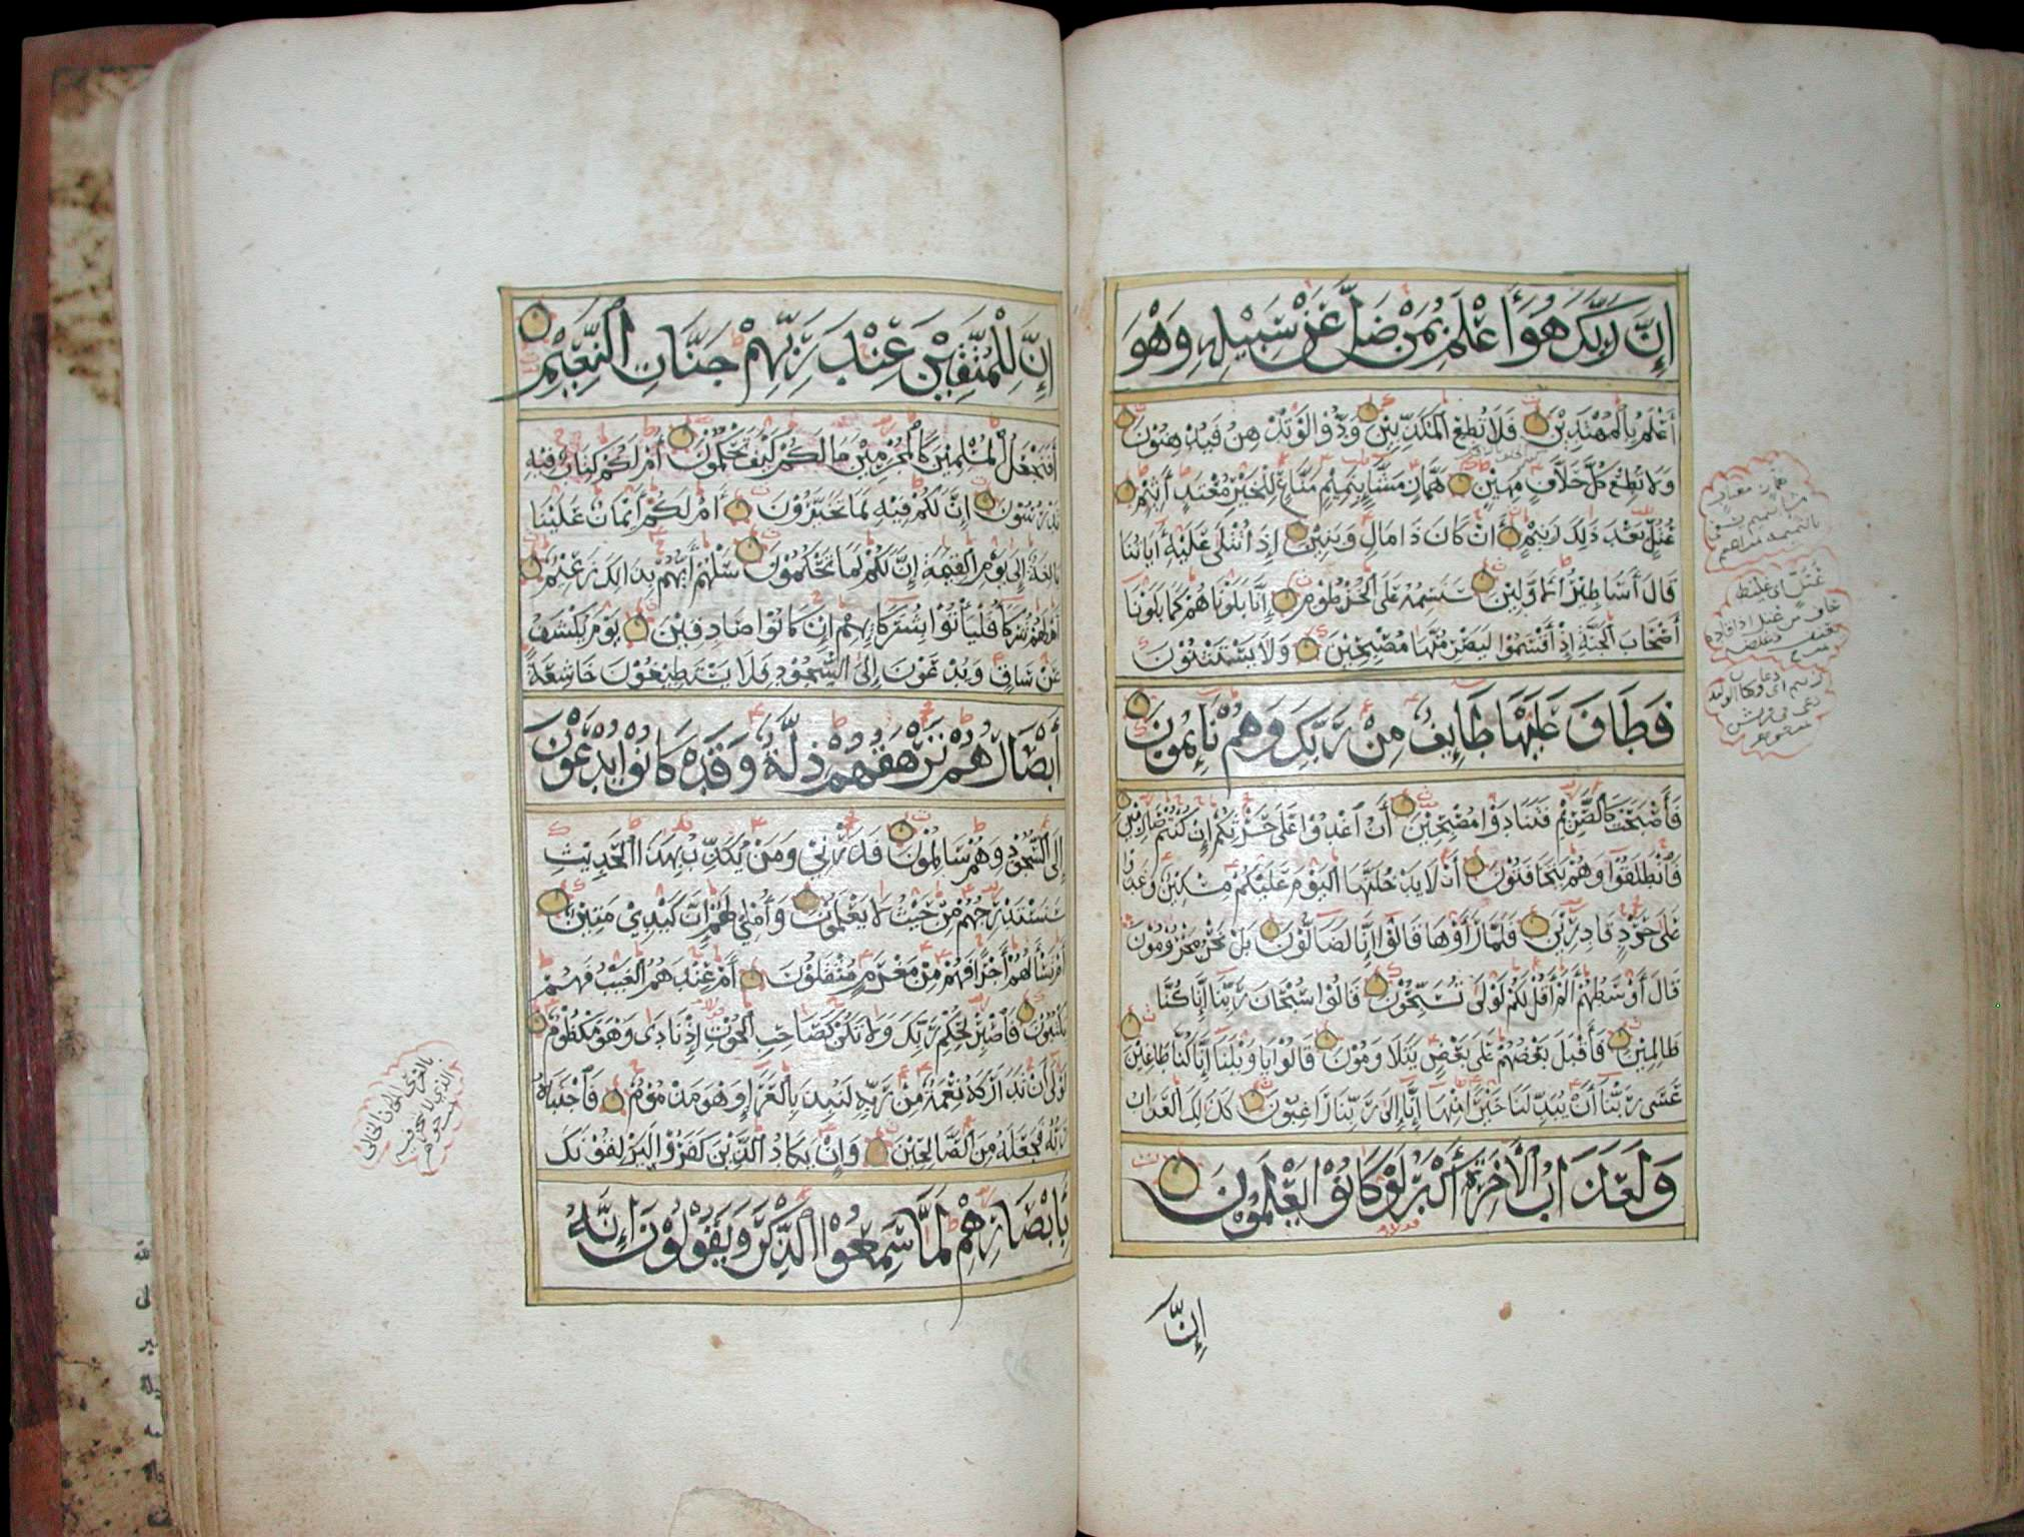 إِنَّ رَبَّكَ هُوَ أَعْلَمُ بِمَنْ ضَلَّ عَنْ سَبِيْلِهِ وَهْوَ
أَعْلَمُ بِالْمُهْتَدِيْنَ فَلَا تُطِعِ الْمُكَذِّبِيْنَ وَدُّوْا لَوْ تُدْهِنُ فَيُدْهِنُوْنَ
وَلَا تُطِعْ كُلَّ حَلَّافٍ مَهِيْنٍ هَمَّازٍ مَشَّاءٍ بِنَمِيْمٍ مَنَّاعٍ لِلْخَيْرِ مُعْتَدٍ أَثِيْمٍ
عُتُلٍّ بَعْدَ ذَلِكَ زَنِيْمٍ أَنْ كَانَ ذَا مَالٍ وَبَنِيْنَ إِذَا تُتْلَى عَلَيْهِ أَيَاتُنَا
قَالَ أَسَاطِيْرُ الْأَوَّلِيْنَ سَنَسِمُهُ عَلَى الْخُرْطُوْمِ إِنَّا بَلَوْنَاهُمْ كَمَا بَلَوْنَا
أَصْحَابَ الْجَنَّةِ إِذْ أَقْسَمُوْا لَيَصْرِمُنَّهَا مُصْبِحِيْنَ وَلَا يَسْتَثْنُوْنَ
فَطَافَ عَلَيْهَا طَائِفٌ مِنْ رَبِّكَ وَهُمْ نَائِمُوْنَ
فَأَصْبَحَتْ كَالصَّرِيْمِ فَتَنَادَوْا مُصْبِحِيْنَ أَنِ اغْدُوْا عَلَى حَرْثِكُمْ إِنْ كُنْتُمْ صَارِمِيْنَ
فَانْطَلَقُوْا وَهُمْ يَتَخَافَتُوْنَ أَنْ لَا يَدْخُلَنَّهَا الْيَوْمَ عَلَيْكُمْ مِسْكِيْنٌ وَغَدَوْا
عَلَى حَرْدٍ قَادِرِيْنَ فَلَمَّا رَأَوْهَا قَالُوْا إِنَّا لَضَالُّوْنَ بَلْ نَحْنُ مَحْرُوْمُوْنَ
قَالَ أَوْسَطُهُمْ أَلَمْ أَقُلْ لَكُمْ لَوْلَى تُسَبِّحُوْنَ قَالُوْا سُبْحَانَ رَبِّنَا إِنَّا كُنَّا
ظَالِمِيْنَ فَأَقْبَلَ بَعْضُهُمْ عَلَى بَعْضٍ يَتَلَاوَمُوْنَ قَالُوْا يَا وَيْلَنَا إِنَّا كُنَّا طَاغِيْنَ
عَسَى رَبُّنَا أَنْ يُبَدِّلَنَا خَيْرًا مِنْهَا إِنَّا إِلَى رَبِّنَا رَاغِبُوْنَ كَذَلِكَ الْعَذَابُ
وَلَعَذَابُ الْأَخِرَةِ أَكْبَرُ لَوْ كَانُوْا يَعْلَمُوْنَ
إِنَّ
إِنَّ لِلْمُتَّقِيْنَ عِنْدَ رَبِّهِمْ جَنَّاتِ النَّعِيْمِ
أَفَنَجْعَلُ الْمُسْلِمِيْنَ كَالْمُجْرِمِيْنَ مَا لَكُمْ كَيْفَ تَحْكُمُوْنَ أَمْ لَكُمْ كِتَابٌ فِيْهِ
تَدْرُسُوْنَ إِنَّ لَكُمْ فِيْهِ لَمَا تَخَيَّرُوْنَ أَمْ لَكُمْ أَيْمَانٌ عَلَيْنَا
بَالِغَةٌ إِلَى يَوْمِ الْقِيَمَةِ إِنَّ لَكُمْ لَمَا تَحْكُمُوْنَ سَلْهُمْ أَيُّهُمْ بِذَالِكَ زَعِيْمٌ
أَمْ لَهُمْ شُرَكَاءُ فَلْيَأْتُوْا بِشُرَكَائِهِمْ إِنْ كَانُوْا صَادِقِيْنَ يَوْمَ يُكْشَفُ
عَنْ سَاقٍ وَيُدْعَوْنَ إِلَى السُّجُوْدِ فَلَا يَسْتَطِيْعُوْنَ خَاشِعَةً
أَبْصَارُهُمْ تَرْهَقُهُمْ ذِلَّةٌ وَقَدْ كَانُوْا يُدْعَوْنَ
إِلَى السُّجُوْدِ وَهُمْ سَالِمُوْنَ فَذَرْنِيْ وَمَنْ يُكَذِّبُ بِهَذَا الْحَدِيْثِ
سَنَسْتَدْرِجُهُمْ مِنْ حَيْثُ لَا يَعْلَمُوْنَ وَأُمْلِيْ لَهُمْ إِنَّ كَيْدِيْ مَتِيْنٌ
أَمْ تَسْأَلُهُمْ أَجْرًا فَهُمْ مِنْ مَغْرَمٍ مُثْقَلُوْنَ أَمْ عِنْدَهُمُ الْغَيْبُ فَهُمْ
يَكْتُبُوْنَ فَاصْبِرْ لِحُكْمِ رَبِّكَ وَلَا تَكُنْ كَصَاحِبِ الْحُوْتِ إِذْ نَادَى وَهْوَ مَكْظُوْمٌ
لَوْلَى أَنْ تَدَارَكَهُ نِعْمَةٌ مِنْ رَبِّهِ لَنُبِذَ بِالْعَرَاءِ وَهْوَ مَذْمُوْمٌ فَاجْتَبَاهُ
رَبُّهُ فَجَعَلَهُ مِنَ الصَّالِحِيْنَ وَإِنْ يَكَادُ الَّذِيْنَ كَفَرُوْا لَيُزْلِقُوْنَكَ
بِأَبْصَارِهِمْ لَمَّا سَمِعُوْا الذِّكْرَ وَيَقُوْلُوْنَ إِنَّهُ